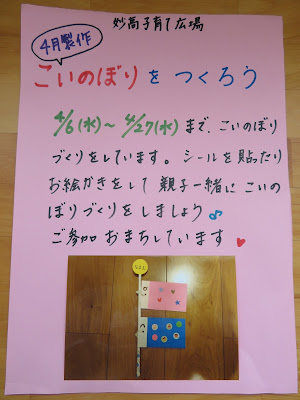 妙高子育て広場
4月製作
こいのぼりを つくろう
4/6(水)～4/27(水)まで、こいのぼり
づくりをしています。シールを貼ったり
お絵かきをして 親子一緒に こいの
ぼりづくりをしましょう♪
ご参加 おまちしています♥